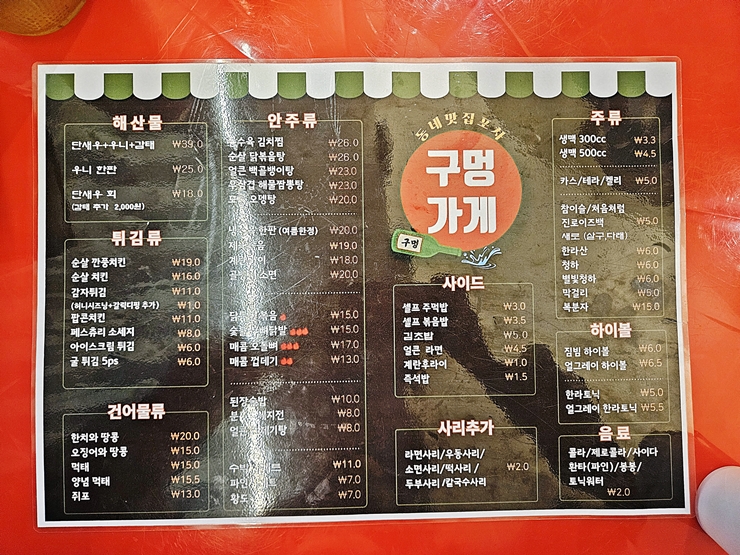 해산물
단새우+우니+감태 ₩39.0
우니 한판 ₩25.0
단새우 회 ₩18.0
(감태 추가 2,000원)
튀김류
순살 깐풍치킨 ₩19.0
순살 치킨 ₩16.0
감자튀김 ₩11.0
(허니시즈닝+갈릭디핑 추가) ₩1.0
팝콘치킨 ₩11.0
페스츄리 소세지 ₩8.0
아이스크림 튀김 ₩6.0
굴 튀김 5ps ₩6.0
건어물류
한치와 땅콩 ₩20.0
오징어와 땅콩 ₩15.0
먹태 ₩15.0
양념 먹태 ₩15.5
쥐포 ₩13.0
안주류
김치찜 ₩26.0
순살 닭볶음탕 ₩26.0
얼큰 백골뱅이탕 ₩23.0
해물짬뽕탕 ₩23.0
오뎅탕 ₩20.0
한판 (여름한정) ₩20.0
₩19.0
₩18.0
소면 ₩20.0
볶음 ₩15.0
₩15.0
매콤 오돌뼈 ₩17.0
매콤 껍데기 ₩13.0
된장술밥 ₩10.0
₩8.0
얼큰 ₩8.0
₩11.0
₩7.0
₩7.0
동네맛집포차
구멍
가게
구멍
사이드
셀프 주먹밥 ₩3.0
셀프 볶음밥 ₩3.5
김초밥 ₩5.0
얼큰 라면 ₩4.5
계란후라이 ₩1.0
즉석밥 ₩1.5
사리추가
라면사리/우동사리/
소면사리/떡사리/ ₩2.0
두부사리/칼국수사리
주류
생맥 300cc ₩3.3
생맥 500cc ₩4.5
카스/테라/켈리 ₩5.0
참이슬/처음처럼
진로이즈백 ₩5.0
새로 (살구,다래)
한라산 ₩6.0
청하 ₩6.0
별빛청하 ₩6.0
막걸리 ₩5.0
복분자 ₩15.0
하이볼
짐빔 하이볼 ₩6.0
얼그레이 하이볼 ₩6.5
한라토닉 ₩5.0
얼그레이 한라토닉 ₩5.5
음료
콜라/제로콜라/사이다
환타(파인)/봉봉/
토닉워터
₩2.0